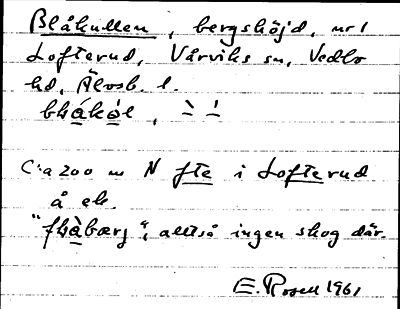 Blåkullen, bergshöjd, nr 1
Lofterud, Vårviks sn, Vedbo
hd, Älvsb. l.
blåkól, ` ´
C:a 200 m N fte i Lofterud
å ek.
"flåbærj", alltså ingen skog där.
E. Rosell 1961